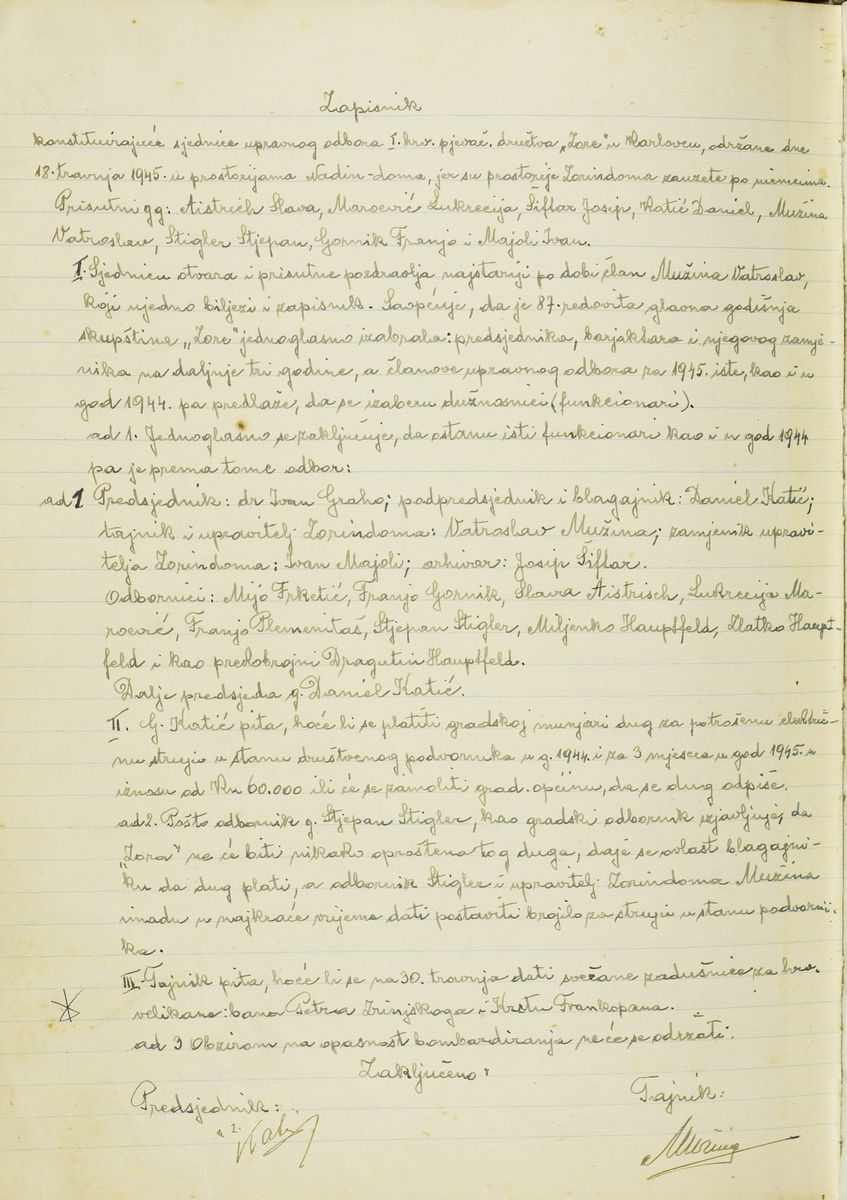 Zapisnik
konstituirajuće sjednice upravnog odbora I. hrv. pjevač. društva „Zore" u Karlovcu, održane dne
18. travnja 1945. u prostorijama Nadin-doma, jer su prostorije Zorindoma zauzete po nijemcima.
Prisutni gg: Aistrich Slava, Maroević Lukrecija, Šiflar Josip, Katić Daniel, Mužina
Vatroslav, Stigler Stjepan, Gornik Franjo i Majoli Ivan.
I. Sjednicu otvara i prisutne pozdravlja najstariji po dobi član Mužina Vatroslav,
koji ujedno bilježi i zapisnik. Saopćuje, da je 87. redovita glavna godišnja
skupština „Zore" jednoglasno izabrala: predsjednika, barjaktara i njegovog zamje-
nika na daljnje tri godine, a članove upravnog odbora za 1945. iste, kao i u
god 1944. pa predlaže, da se izaberu dužnosnici (funkcionari).
ad 1. Jednoglasno se zaključuje, da ostanu isti funkcionari kao i u god 1944
pa je prema tome odbor:
ad 1 Predsjednik: dr Ivan Graho; podpredsjednik i blagajnik: Daniel Katić;
tajnik i upravitelj Zorindoma: Vatroslav Mužina; zamjenik upravi-
telja Zorindoma: Ivan Majoli; arhivar: Josip Šiflar.
Odbornici: Mijo Frketić, Franjo Gornik, Slava Aistrisch, Lukrecija Ma-
roević, Franjo Plemenitaš, Stjepan Stigler, Miljenko Hauptfeld, Zlatko Haupt-
feld i kao prekobrojni Dragutin Hauptfeld.
Dalje predsjeda g. Daniel Katić.
II. G. Katić pita, hoće li se platiti gradskoj munjari dug za potrošenu električ-
nu struju u stanu društvenog podvornika u g. 1944. i za 3 mjeseca u god 1945. u
iznosu od Kn 60.000 ili će se zamoliti grad. općinu, da se dug odpiše.
ad 2. Pošto odbornik g. Stjepan Stigler, kao gradski odbornik izjavljuje, da
„Zora" ne će biti nikako oproštena tog duga, daje se ovlast blagajni-
ku da dug plati, a odbornik Stigler i upravitelj Zorindoma Mužina
imadu u najkraće vrijeme dati postaviti brojilo za struju u stanu podvorni-
ka.
III. Tajnik pita, hoće li se na 30. travnja dati svečane zadušnice za hrv.
velikane: bana Petra Zrinjskoga i Krstu Frankopana.
ad 3 Obzirom na opasnost bombardiranja ne će se održati.
Zaključeno:
Predsjednik: Tajnik:
Mužina